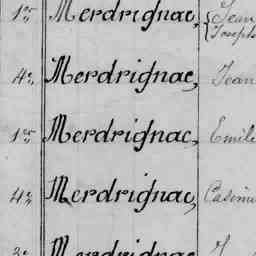 1er Merdrignac, { Jean
Joseph
4e Merdrignac, Jean
1er Merdrignac, Emile
4e Merdrignac, Casimir
2e Merdrignac